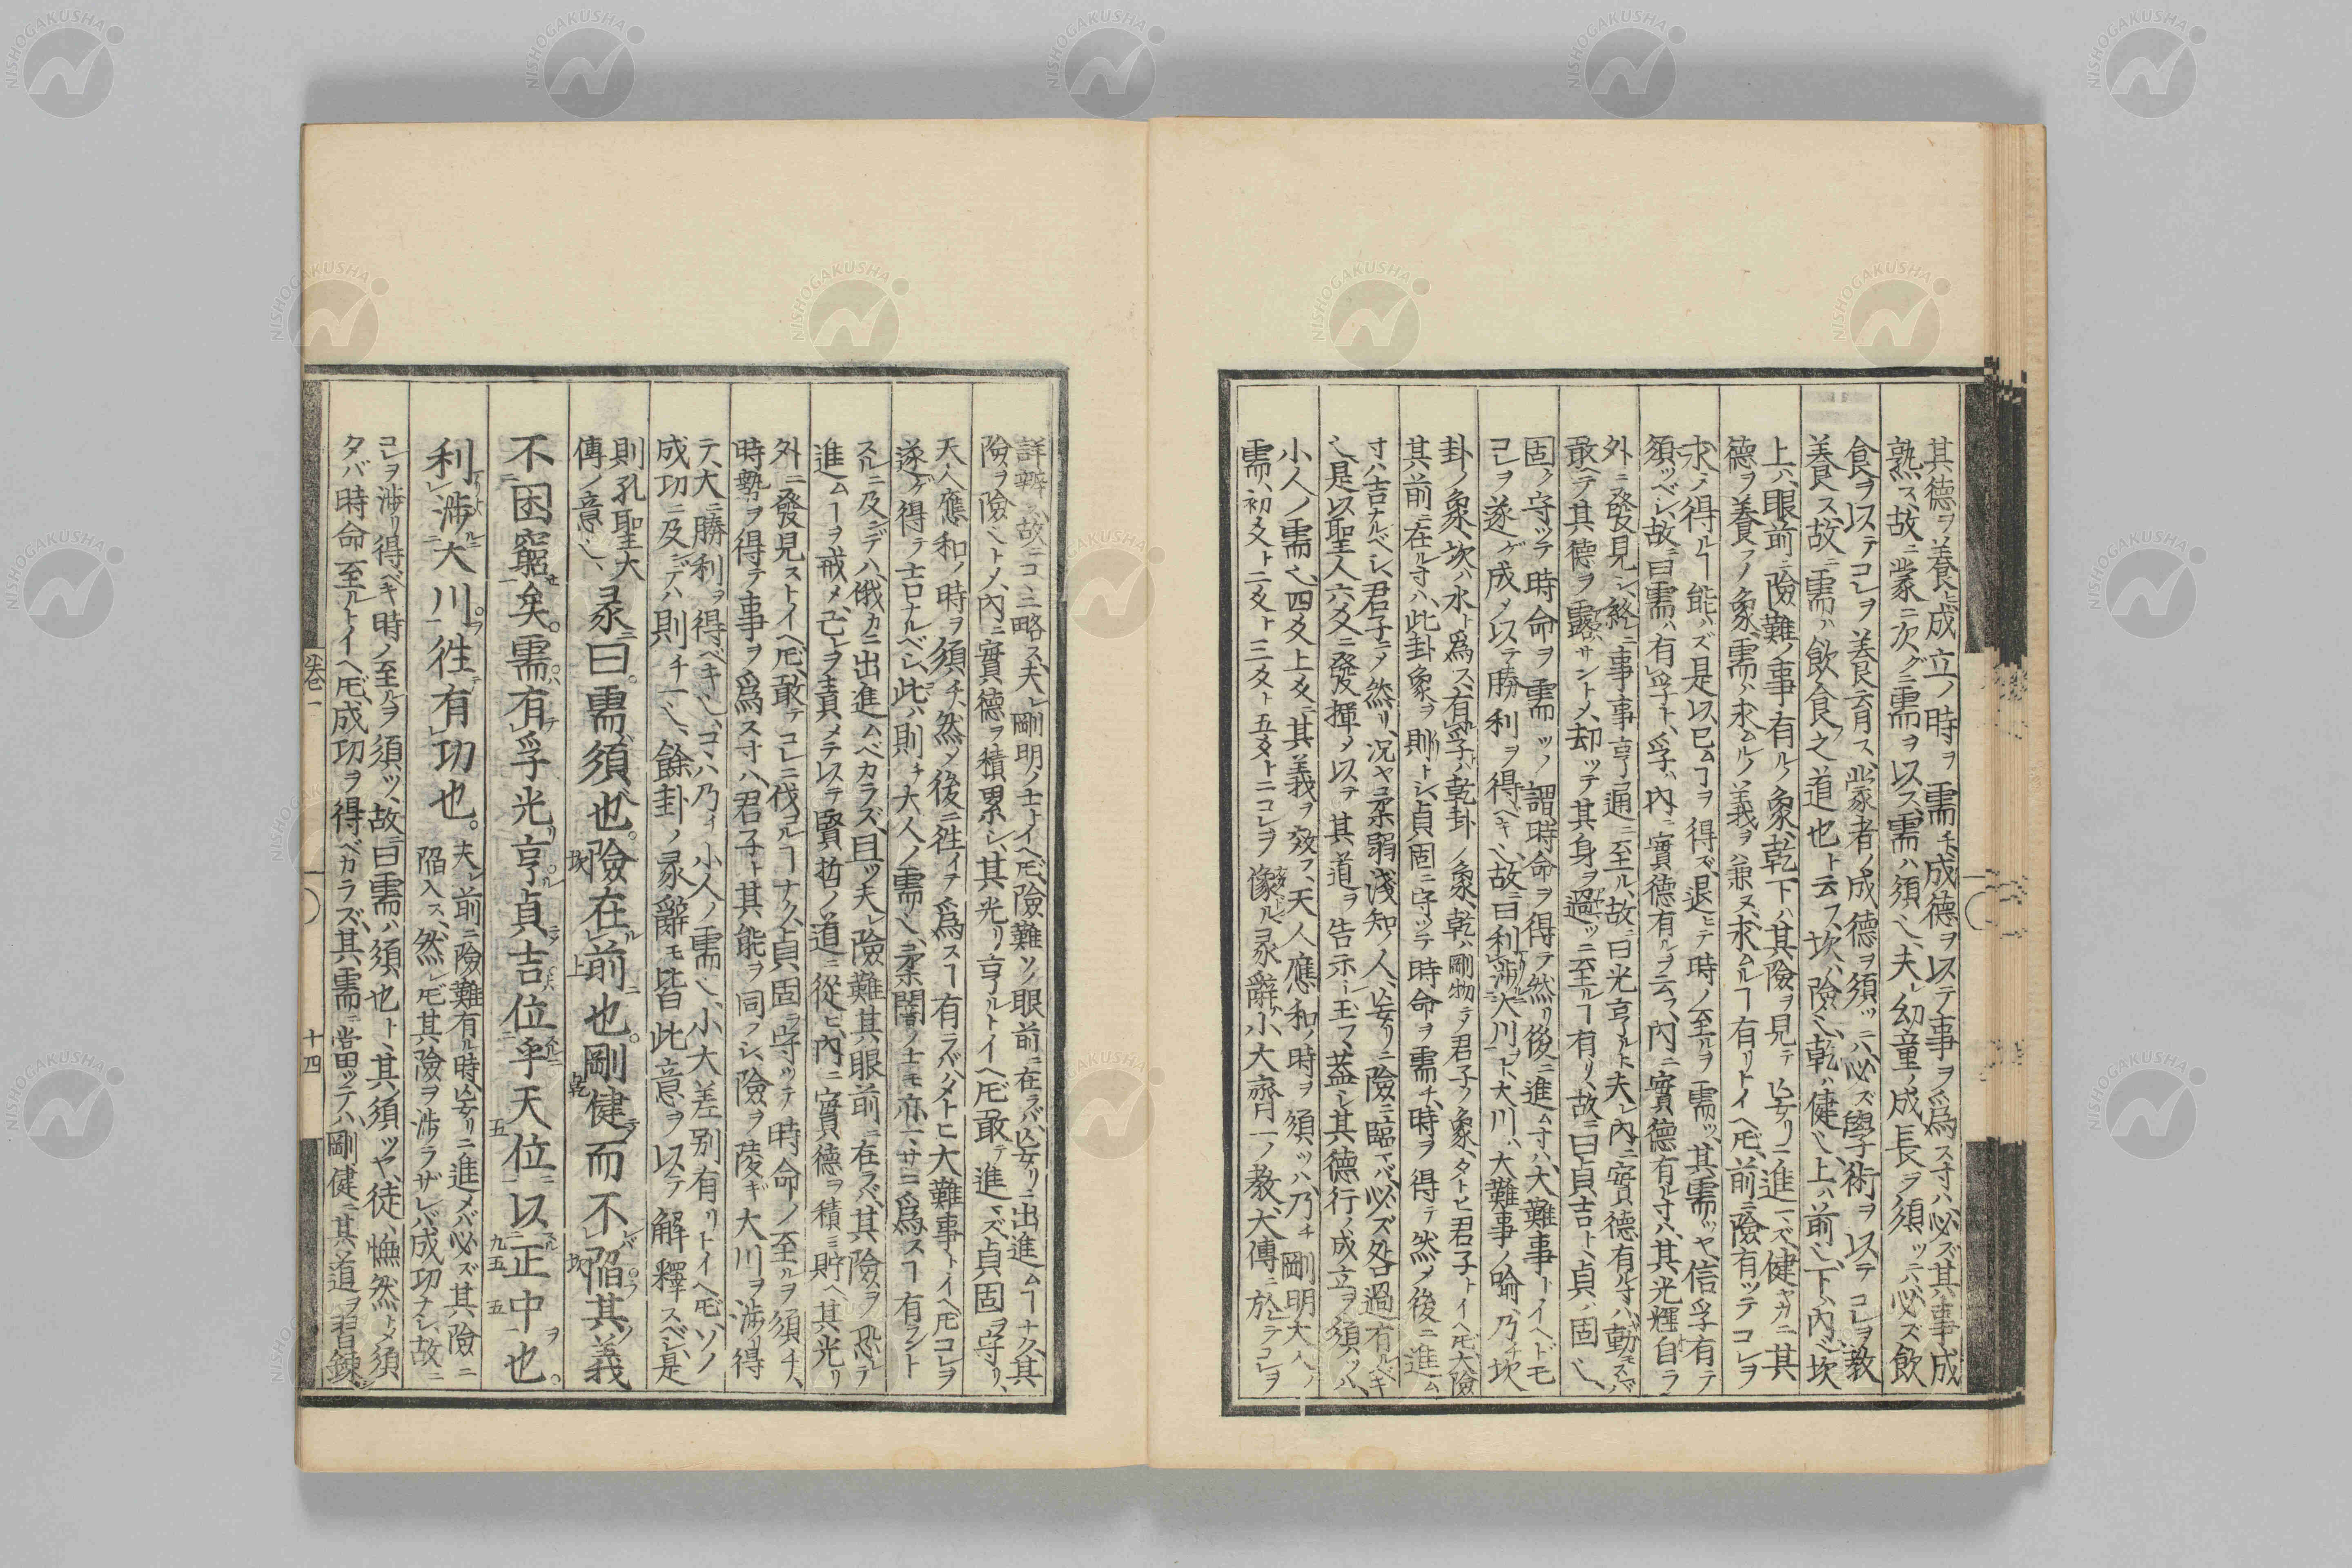 其德ヲ養ヒ成立ノ時ヲ需チ、成德ヲ以テ事ヲ爲ス寸ハ必ズ其事成
熟ス、故ニ蒙ニ次グニ需ヲ以ス、需ハ須也、夫レ幼童ノ成長ヲ須ツニハ必ズ飮
食ヲ以テコレヲ養育ス、蒙者ノ成德ヲ須ツニハ必ズ學術ヲ以テコレヲ教
養ス、故ニ需ハ飮食之道也ト云フ、坎ハ險也、乾ハ健也、上ハ前也、下ハ內也、坎
上ハ眼前ニ險難ノ事有ルノ象、乾下ハ其險ヲ見テ妄リニ進マズ、健ヤカニ其
德ヲ養フノ象、需ハ求ムルノ義ヲ兼ヌ、求ムルヿ有リトイヘ𪜈、前ニ險有ツテコレヲ
求メ得ルヿ能ハズ、是以已ムヿヲ得ズ、退ヒテ時ノ至ルヲ需ツ、其需ツヤ信孚有テ
須ツベシ、故ニ曰需ハ有孚ト、孚ハ內ニ實德有ルヲ云フ、內ニ實德有ル寸ハ、其光輝自ラ
外ニ發見シ、終ニ事事亨通ニ至ル、故ニ曰光亨ルト、夫レ內ニ實德有ル寸ハ、動モスレバ
敢ヘテ其德ヲ露ハサントメ、却ツテ其身ヲ過ツニ至ルヿ有リ、故ニ曰貞吉ト、貞ハ固也、
固ク守ツテ時命ヲ需ツノ謂、時命ヲ得テ然メ後ニ進ム寸ハ、大難事トイヘドモ
コレヲ遂ゲ成メ以テ勝利ヲ得ベキ也、故ニ曰利渉大川ヲト、大川ハ大難事ノ喩、乃チ坎
卦ノ象、坎ハ水ト爲ス、有孚ハ乾卦ノ象、乾ハ剛物ニメ君子ノ象、タトヒ君子トイヘ𪜈、大險
其前ニ在ル寸ハ、此卦象ヲ則トシ、貞固ニ守ツテ時命ヲ需チ、時ヲ得テ然メ後ニ進ム
寸ハ吉ナルベシ、君子ニメ然リ、況ヤ柔弱淺知ノ人、妄リニ險ニ臨マバ必ズ咎過有ルベキ
也、是以聖人六爻ニ發揮メ以テ其道ヲ告示シ玉フ、蓋シ其德行ノ成立ヲ須ツハ、
小人ノ需也、四爻上爻ニ其義ヲ效フ、天人應和ノ時ヲ須ツハ乃チ剛明大人ノ
需、初爻ト二爻ト三爻ト五爻トニコレヲ像ル、彖辭ハ小大齊一ノ教、大傳ニ於テコレヲ
詳辨ス、故ニコヽニ略ス、夫レ剛明ノ士トイヘ𪜈、險難ソノ眼前ニ在ラバ、妄リニ出進ムヿナク、其
險ヲ險也トメ、內ニ實德ヲ積累シ、其光リ亨ルトイヘ𪜈敢テ進マズ、貞固ヲ守リ、
天人應和ノ時ヲ須チ、然メ後ニ往イテ爲スヿ有ラバ、タトヒ大難事トイヘ𪜈コレヲ
遂ゲ得テ吉ナルベシ、此ハ則チ大人ノ需リ也、柔闇ノ士モ亦一、サニ爲スヿ有ラント
スルニ及ンデハ、俄カニ出進ムベカラズ、且ツ夫レ險難其眼前ニ在ラバ、其險ヲ恐レテ
進ムヿヲ戒メ、己レヲ責メテ以テ賢哲ノ道ニ從ヒ、內ニ實德ヲ積ミ貯ヘ、其光リ
外ニ發見ストイヘ𪜈、敢テコレニ伐コルヿナク、貞固ヲ守ツテ時命ノ至ルヲ須チ、
時勢ヲ得テ事ヲ爲ス寸ハ、君子ト其能ヲ同フシ、險ヲ陵ギ大川ヲ渉リ得
テ、大ニ勝利ヲ得ベキ也、コヽハ乃チ小人ノ需也、小大差別有リトイヘ𪜈、ソノ
成功ニ及ンデハ則チ一也、餘卦ノ彖辭モ皆此意ヲ以テ解釋スベシ、是
則孔聖大
傳ノ意也、
彖曰。需須也。險在前也。剛健而不陷其義
坎 上 乾 坎
不困窮矣。需有孚光亨貞吉位乎天位以正中也。
五 九五 五
利渉大川。往有功也。
夫レ前ニ險難有ル時妄リニ進メバ必ズ其險ニ
陷入ス、然レ𪜈其險ヲ渉ラザレバ成功ナシ、故ニ
コレヲ渉リ得ベキ時ノ至ルヲ須ツ、故ニ曰需ハ須也ト、其須ツヤ、徒ニ憮然トメ須
タバ時命至ルトイヘ𪜈、成功ヲ得ベカラズ、其需ニ當ツテハ剛健ニ其道ヲ習鍊シ
卷一
十四